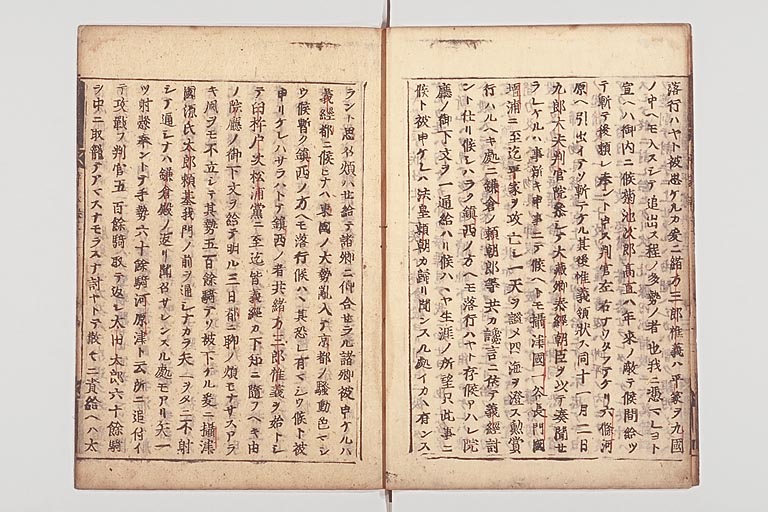 落行ハヤト被思ケルカ爰ニ緒方三郎惟義ハ平家ヲ九國
ノ中ヘモ入スシテ追出ス程ノ多勢ノ者也我ニ憑マレヨト
宣ヘハ御内ニ候菊池次郎高直ハ年来ノ敵テ候間給ツ
テ斬テ後頼レ奉ント申ス判官左右ナウタフテケリ六條河
原ヘ引出イテソ斬テケル其後惟義領状ス同十一月二日
九郎大夫判官院参シテ大蔵卿泰經朝臣ヲ以テ奏聞セ
ラレケルハ事新キ申事ニテ候ヘトモ攝津國一谷長門國
壇浦ニ至迄平家ヲ攻亡シ一天ヲ謐メ四海ヲ澄ス勲賞
行ハルヘキ處ニ鎌倉ノ頼朝郎等共カ讒言ニ依テ義經討
ント仕リ候シハラク鎮西ノ方ヘモ落行ハヤト存候アハレ院
廳ノ御下文ヲ一通給ハリ候ハヽヤ生涯ノ所望只此事ニ
候ト被申ケレハ法皇頼朝カ歸リ聞ンスル處イカヽ有ンス
ラント思召煩ハセ給テ諸卿ニ仰合セラル諸卿被申ケルハ
義經都ニ候ヒナハ東國ノ大勢乱入テ京都ノ騒動色マシ
ウ候暫ク鎮西ノ方ヘモ落行候ハヽ其恐レ有マシウ候ト被
申ケレハサラハトテ鎮西ノ者共緒方三郎惟義ヲ始トシ
テ臼杵戸次松浦黨ニ至迄皆義經カ下知ニ隨フヘキ由
ノ院廳ノ御下文ヲ給テ明ル三日都ニ聊ノ煩モナサスアラ
キ風ヲモ不立シテ其勢五百餘騎テソ被下ケル爰ニ攝津
國源氏太郎頼基我門ノ前ヲ通シナカラ矢一ヲタニ不射
シテ通シナハ鎌倉殿ノ返リ聞召サレンスル處モアリ矢一
ツ射懸奉ントテ手勢六十餘騎河原津ト云所ニ追付イ
テ攻戰フ判官五百餘騎取テ返シ太田太郎六十餘騎
ヲ中ニ取籠テアマスナモラスナ討ヤトテ散々ニ責給ヘハ太